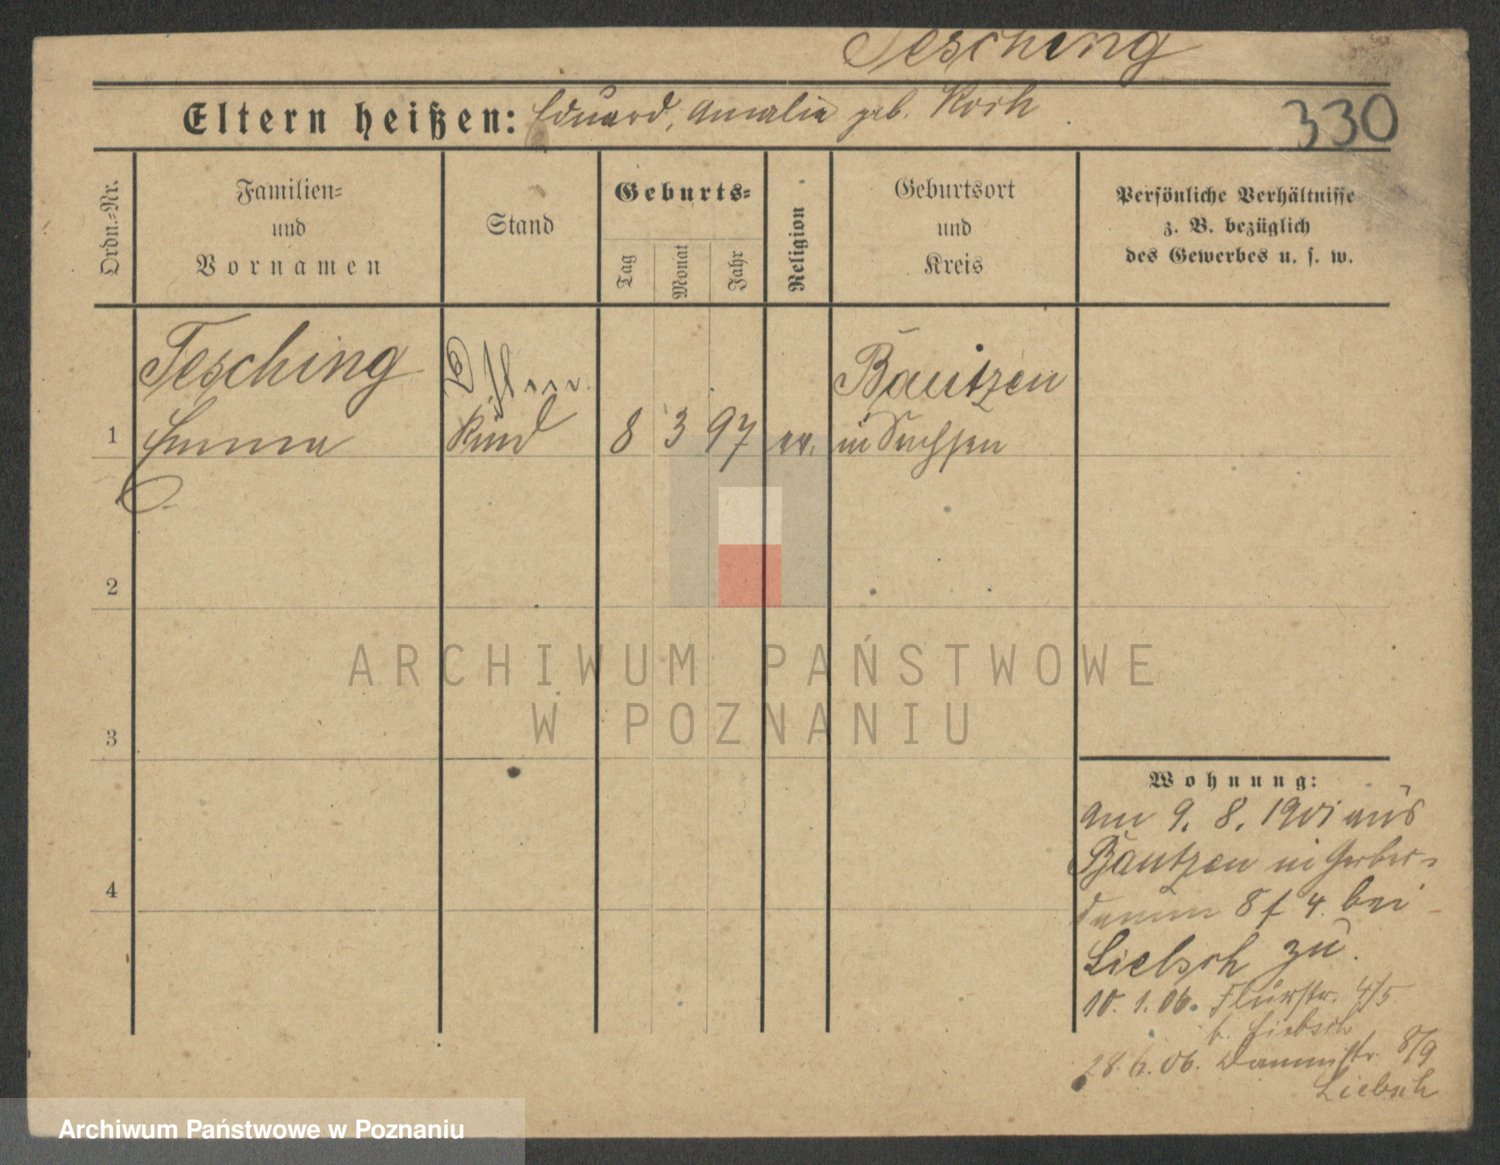 Tesching
Eltern heißen: Eduard, Amalie geb. Koch
330
Ordn.=Nr.
Familien=
und
Vornamen
Stand
Geburts=
Tag
Monat
Jahr
Religion
Geburtsort
und
Kreis
Persönliche Verhältnisse
z. B. bezüglich
des Gewerbes u. s. w.
Tesching
Bautzen
1 Emma Kind 8 3 97 ev. in Sachsen
2
ARCHIWUM PAŃSTWOWE
W POZNANIU
3
Wohnung:
am 9. 8. 1901 aus
Bautzen in Gerber=
damm 8 f 4. bei
Liebsch zu.
10. 1. 06. Flurstr. 4/5
b. Liebsch
28. 6. 06. Dammstr. 8/9
Liebsch
4
Archiwum Państwowe w Poznaniu